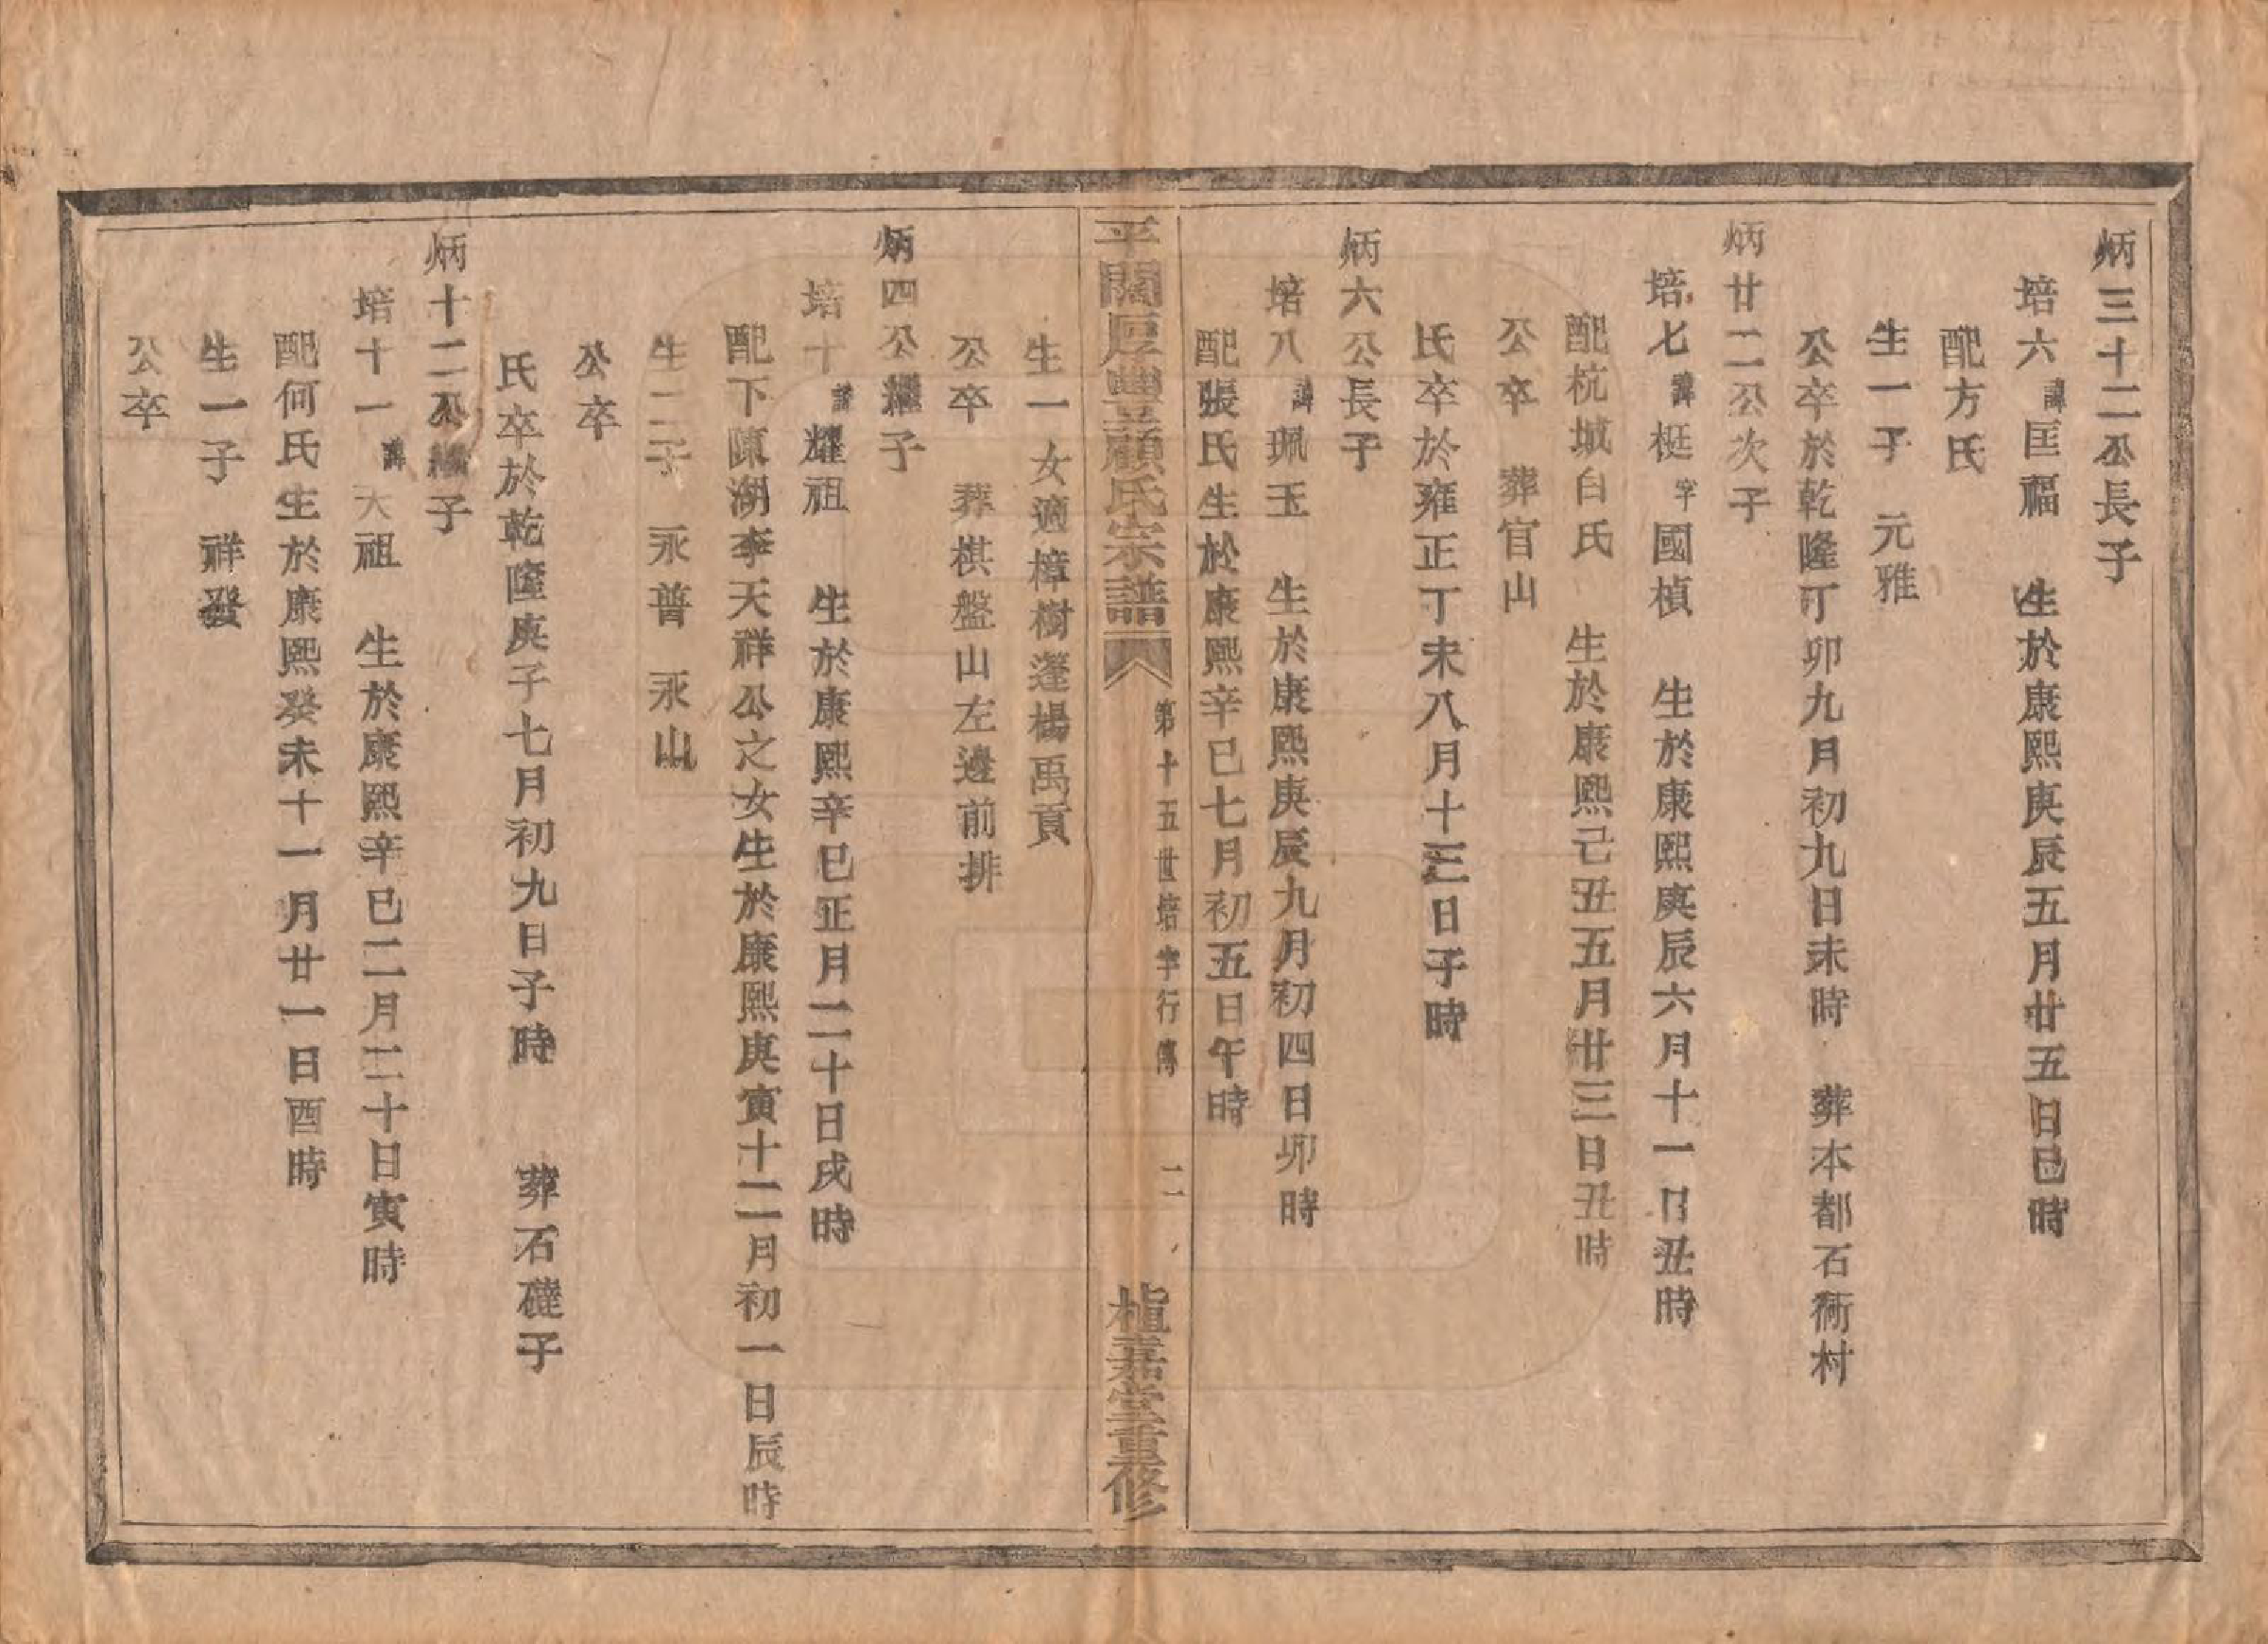 炳三十二公長子
培六 諱 匡福 生於康熙庚辰五月廿五日巳時
配方氏
生一子 元雅
公卒於乾隆丁卯九月初九日未時 葬本都石衕村
炳廿二公次子
培七 諱 梃 字 國楨 生於康熙庚辰六月十一日丑時
配杭城白氏 生於康熙己丑五月廿三日丑時
公卒 葬官山
氏卒於雍正丁未八月十三日子時
炳六公長子
培八 諱 珮玉 生於康熙庚辰九月初四日卯時
配張氏生於康熙辛巳七月初五日午時
平闊厚豐並顧氏宗譜 第十五世培字行傳 二 植嘉堂重修
生一女適樟樹蓬楊禹貢
公卒 葬棋盤山左邊前排
炳四公繼子
培十 諱 耀祖 生於康熙辛巳正月二十日戌時
配下陳湖李天祥公之女生於康熙庚寅十二月初一日辰時
生二子 永普 永山
公卒
氏卒於乾隆庚子七月初九日子時 葬石磋子
炳十二公繼子
培十一 諱 大祖 生於康熙辛巳二月二十日寅時
配何氏生於康熙癸未十一月廿一日酉時
生一子 祥發
公卒